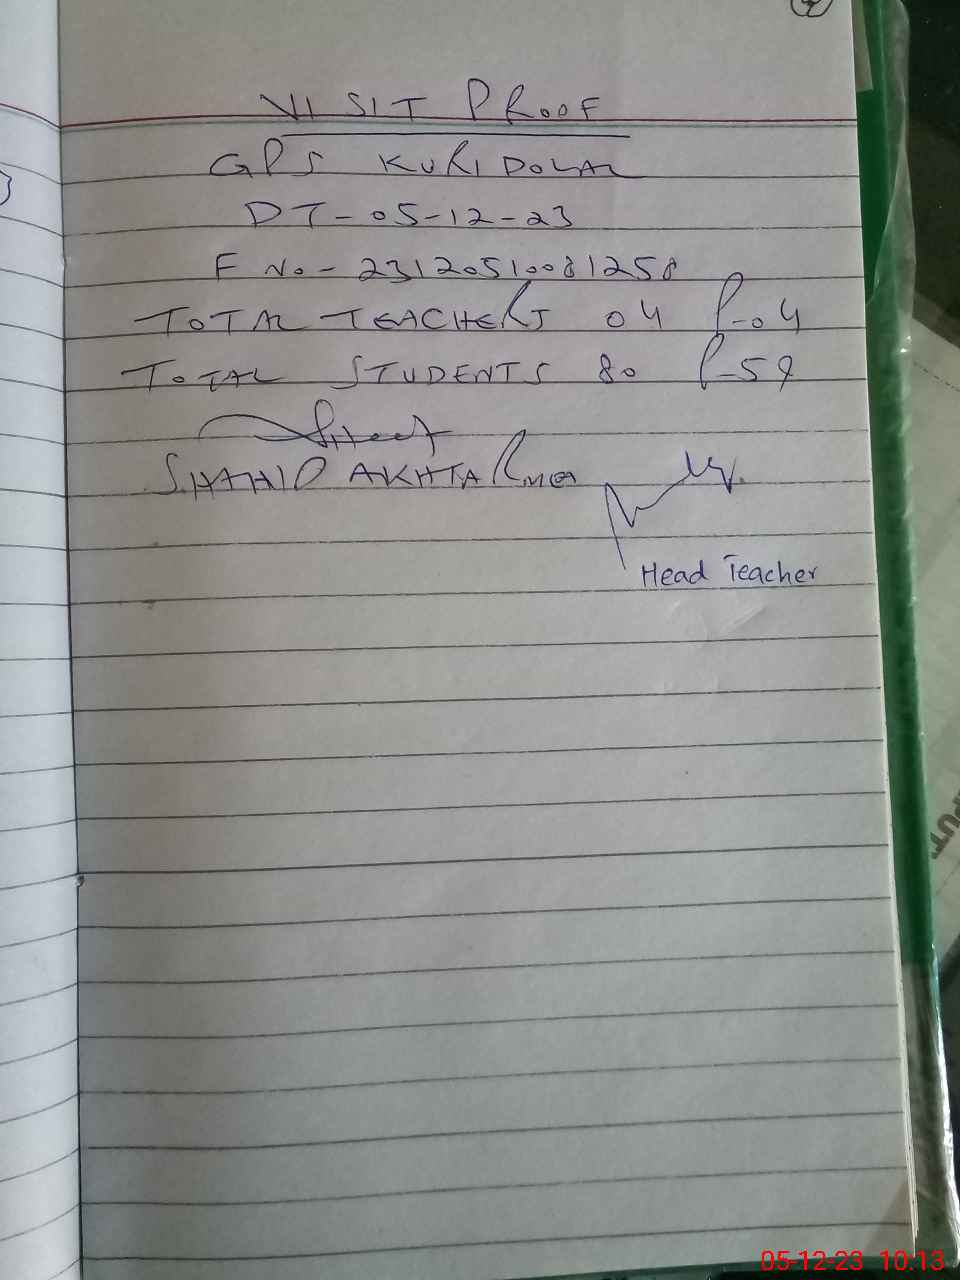 4
VISIT PROOF
GPS KURI DOLAL
DT-05-12-23
F No-23120510081258
TOTAL TEACHERS 04 P-04
TOTAL STUDENTS 80 P-59
SHAHID AKHTAR MEA
Head Teacher
PUT
05-12-23 10:13